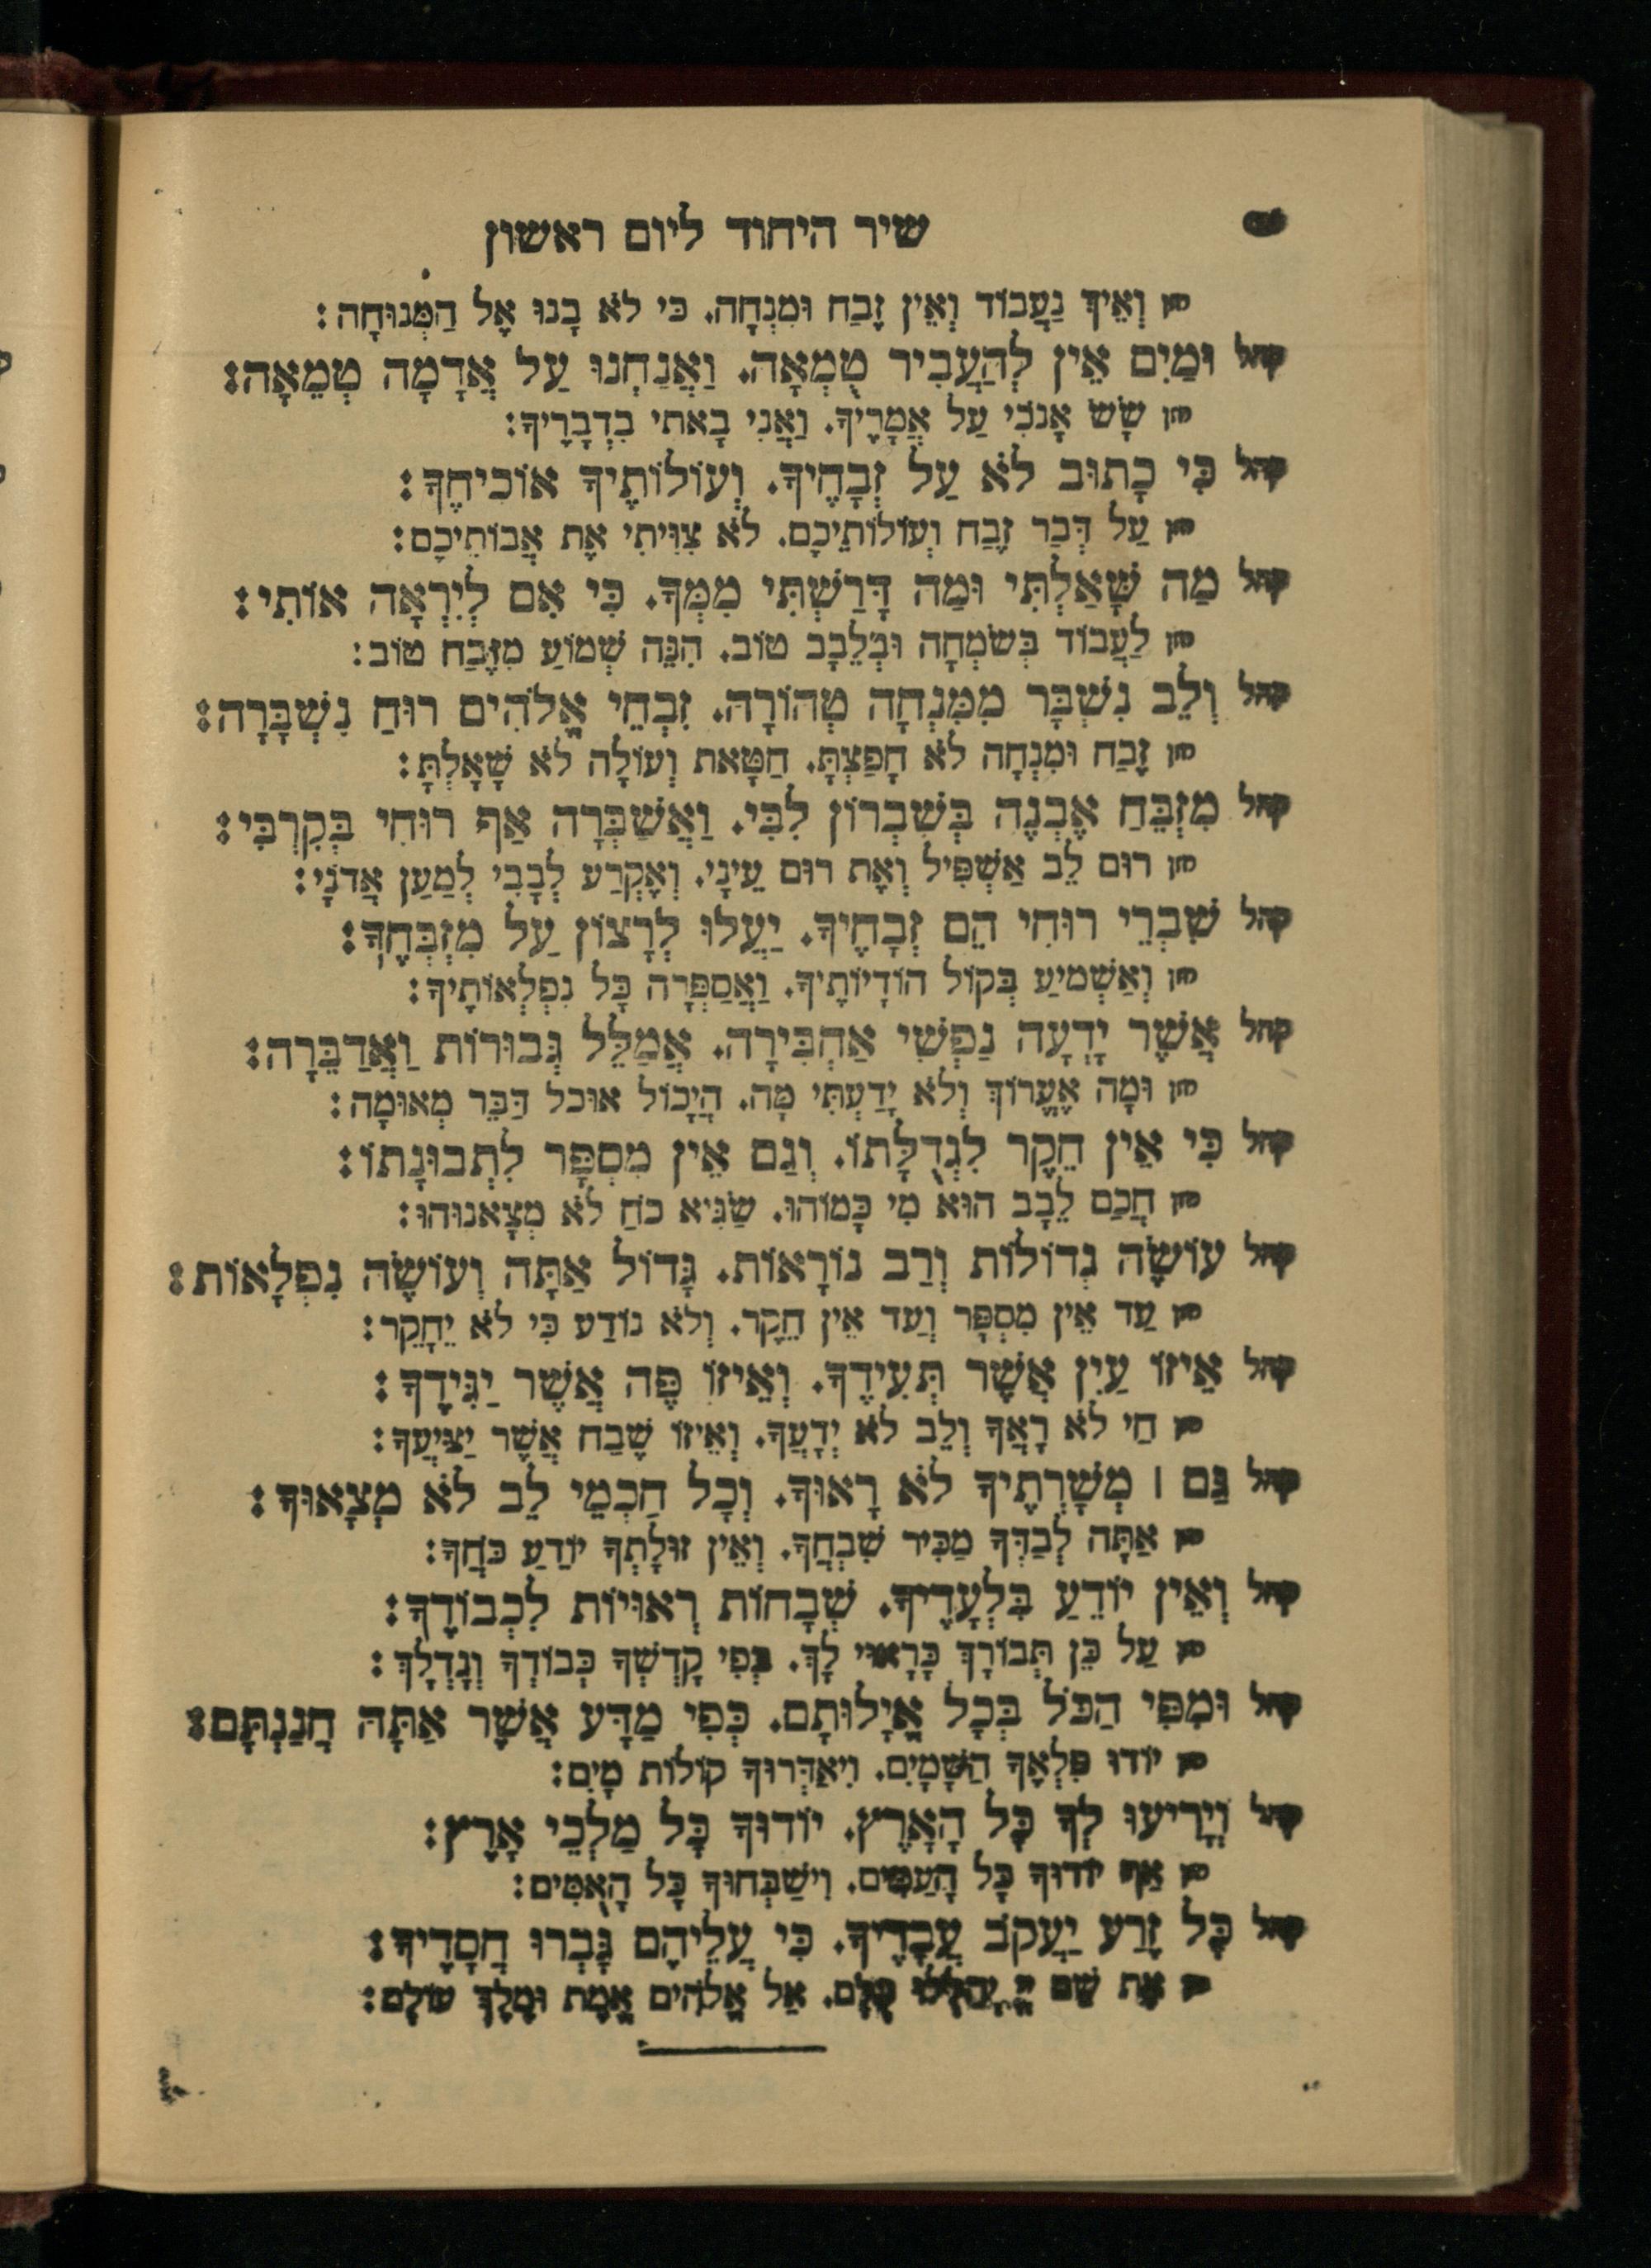 שיר היחוד ליום ראשון
חזן וְאֵיךְ נַעֲבוֹד וְאֵין זֶבַח וּמִנְחָה. כִּי לֹא בָנוּ אֶל הַמְּנוּחָה:
קהל וּמַיִם אֵין לְהַעֲבִיר טֻמְאָה. וַאֲנַחְנוּ עַל אֲדָמָה טְמֵאָה:
חזן שָׂשׂ אָנֹכִי עַל אֲמָרֶיךָ. וַאֲנִי בָאתִי בִדְבָרֶיךָ:
קהל כִּי כָתוּב לֹא עַל זְבָחֶיךָ. וְעוֹלוֹתֶיךָ אוֹכִיחֶךָ:
חזן עַל דְּבַר זֶבַח וְעוֹלוֹתֵיכֶם. לֹא צִוִּיתִי אֶת אֲבוֹתֵיכֶם:
קהל מַה שָּׁאַלְתִּי וּמַה דָּרַשְׁתִּי מִמְּךָ. כִּי אִם לְיִרְאָה אוֹתִי:
חזן לַעֲבוֹד בְּשִׂמְחָה וּבְלֵבָב טוֹב. הִנֵּה שְׁמוֹעַ מִזֶּבַח טוֹב:
קהל וְלֵב נִשְׁבָּר מִמִּנְחָה טְהוֹרָה. זִבְחֵי אֱלֹהִים רוּחַ נִשְׁבָּרָה:
חזן זֶבַח וּמִנְחָה לֹא חָפַצְתָּ. חַטָּאת וְעוֹלָה לֹא שָׁאָלְתָּ:
קהל מִזְבֵּחַ אֶבְנֶה בְּשִׁבְרוֹן לִבִּי. וַאֲשַׁבְּרָה אַף רוּחִי בְּקִרְבִּי:
חזן רוּם לֵב אַשְׁפִּיל וְאֶת רוּם עֵינָי. וְאֶקְרַע לְבָבִי לְמַעַן אֲדֹנָי:
קהל שִׁבְרֵי רוּחִי הֵם זְבָחֶיךָ. יַעֲלוּ לְרָצוֹן עַל מִזְבְּחֶךָ:
חזן וְאַשְׁמִיעַ בְּקוֹל הוֹדָיוֹתֶיךָ. וַאֲסַפְּרָה כָּל נִפְלְאוֹתֶיךָ:
קהל אֲשֶׁר יָדְעָה נַפְשִׁי אַחְבִּירָה. אֲמַלֵּל גְּבוּרוֹת וַאֲדַבֵּרָה:
חזן וּמָה אֶעֱרוֹךְ וְלֹא יָדַעְתִּי מָה. הֲיָכוֹל אוּכַל דַּבֵּר מְאוּמָה:
קהל כִּי אֵין חֵקֶר לִגְדֻלָּתוֹ. וְגַם אֵין מִסְפָּר לִתְבוּנָתוֹ:
חזן חֲכַם לֵבָב הוּא מִי כָּמוֹהוּ. שַׂגִּיא כֹחַ לֹא מְצָאנוּהוּ:
קהל עוֹשֶׂה גְדוֹלוֹת וְרַב נוֹרָאוֹת. גָּדוֹל אַתָּה וְעוֹשֶׂה נִפְלָאוֹת:
חזן עַד אֵין מִסְפָּר וְעַד אֵין חֵקֶר. וְלֹא נוֹדַע כִּי לֹא יֵחָקֵר:
קהל אֵיזוֹ עַיִן אֲשֶׁר תְּעִידֶךָ. וְאֵיזוֹ פֶּה אֲשֶׁר יַגִּידֶךָ:
חזן חַי לֹא רָאֲךָ וְלֵב לֹא יְדָעֲךָ. וְאֵיזוֹ שֶׁבַח אֲשֶׁר יַצִּיעֲךָ:
קהל גַּם ׀ מְשָׁרְתֶיךָ לֹא רָאוּךָ. וְכָל חַכְמֵי לֵב לֹא מְצָאוּךָ:
חזן אַתָּה לְבַדְּךָ מַכִּיר שִׁבְחֲךָ. וְאֵין זוּלָתְךָ יוֹדֵעַ כֹּחֲךָ:
קהל וְאֵין יוֹדֵעַ בִּלְעָדֶיךָ. שְׁבָחוֹת רְאוּיוֹת לִכְבוֹדֶךָ:
חזן עַל כֵּן תְּבוֹרָךְ כָּרָאוּי לָךְ. כְּפִי קָדְשְׁךָ כְּבוֹדְךָ וְגָדְלָךְ:
קהל וּמִפִּי הַכֹּל בְּכָל אֱיָלוּתָם. כְּפִי מַדָּע אֲשֶׁר אַתָּה חֲנַנְתָּם:
חזן יוֹדוּ פִּלְאֲךָ הַשָּׁמָיִם. וִיאַדְּרוּךָ קוֹלוֹת מָיִם:
קהל וְיָרִיעוּ לְךָ כָּל הָאָרֶץ. יוֹדוּךָ כָּל מַלְכֵי אָרֶץ:
חזן אַף יוֹדוּךָ כָּל הָעַמִּים. וִישַׁבְּחוּךָ כָּל הָאֻמִּים:
קהל כָּל זֶרַע יַעֲקֹב עֲבָדֶיךָ. כִּי עֲלֵיהֶם גָּבְרוּ חֲסָדֶיךָ:
חזן אֶת שֵׁם יְיָ יְהַלְלוּ כֻלָּם. אֵל אֱלֹהִים אֱמֶת וּמֶלֶךְ עוֹלָם: